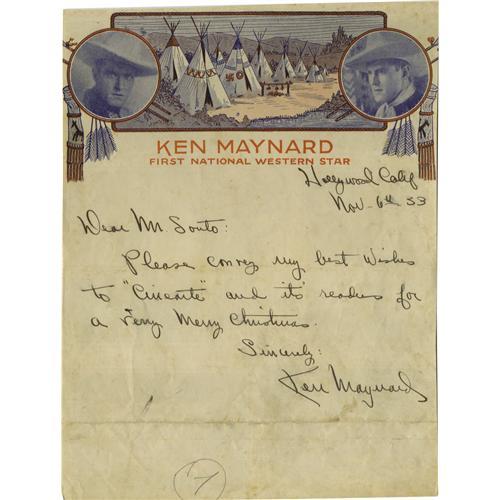 KEN MAYNARD
FIRST NATIONAL WESTERN STAR
Hollywood Calif
Nov-6th 33
Dear Mr Souto:
Please convey my best wishes
to "Cinearte" and its' readers for
a Very Merry Christmas.
Sincerely:
Ken Maynard